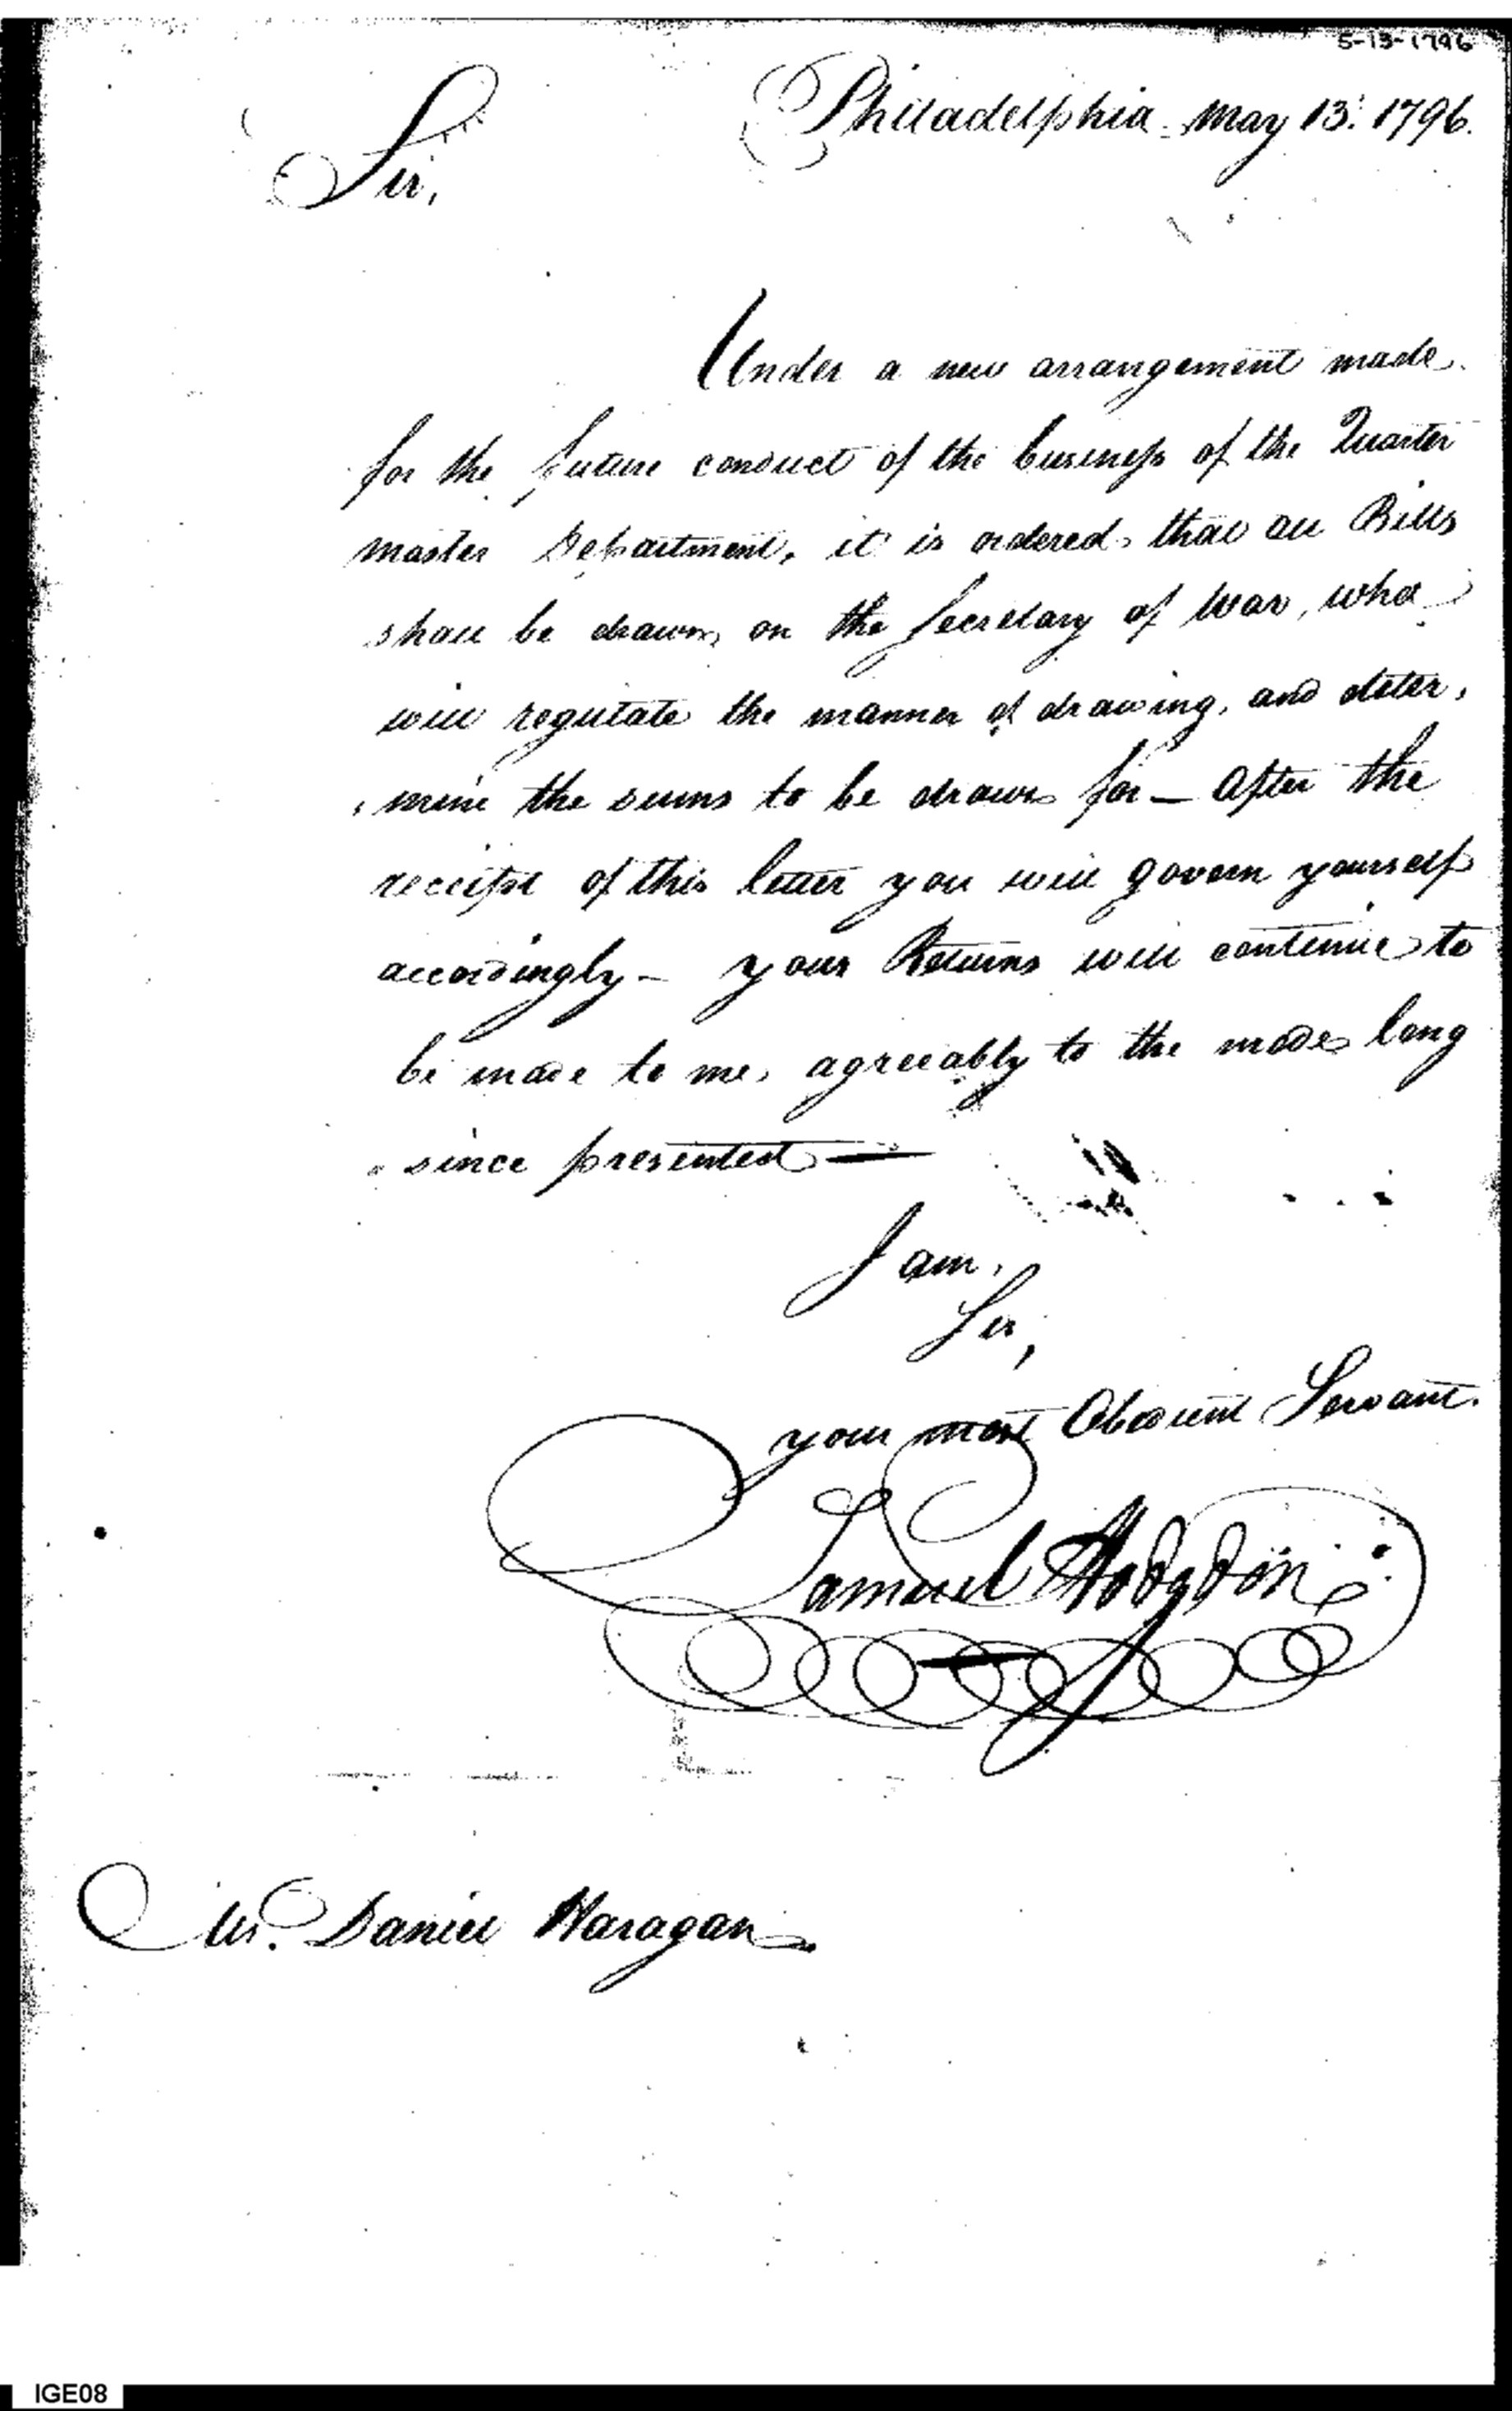 5-13-1796
Philadelphia May 13. 1796.
Sir,
Under a new arrangement made
for the future conduct of the business of the Quarter
master Department, it is ordered that all Bills
shall be drawn on the Secretary of War, who
will regulate the manner of drawing, and deter,
, mine the sums to be drawn for — After the
receipt of this letter you will govern yourself
accordingly — your Returns will continue to
be made to me, agreeably to the mode long
since presented —
I am,
Sir,
your most Obedient Servant.
Samuel Hodgdon
Mr. Daniel Haragan
IGE08